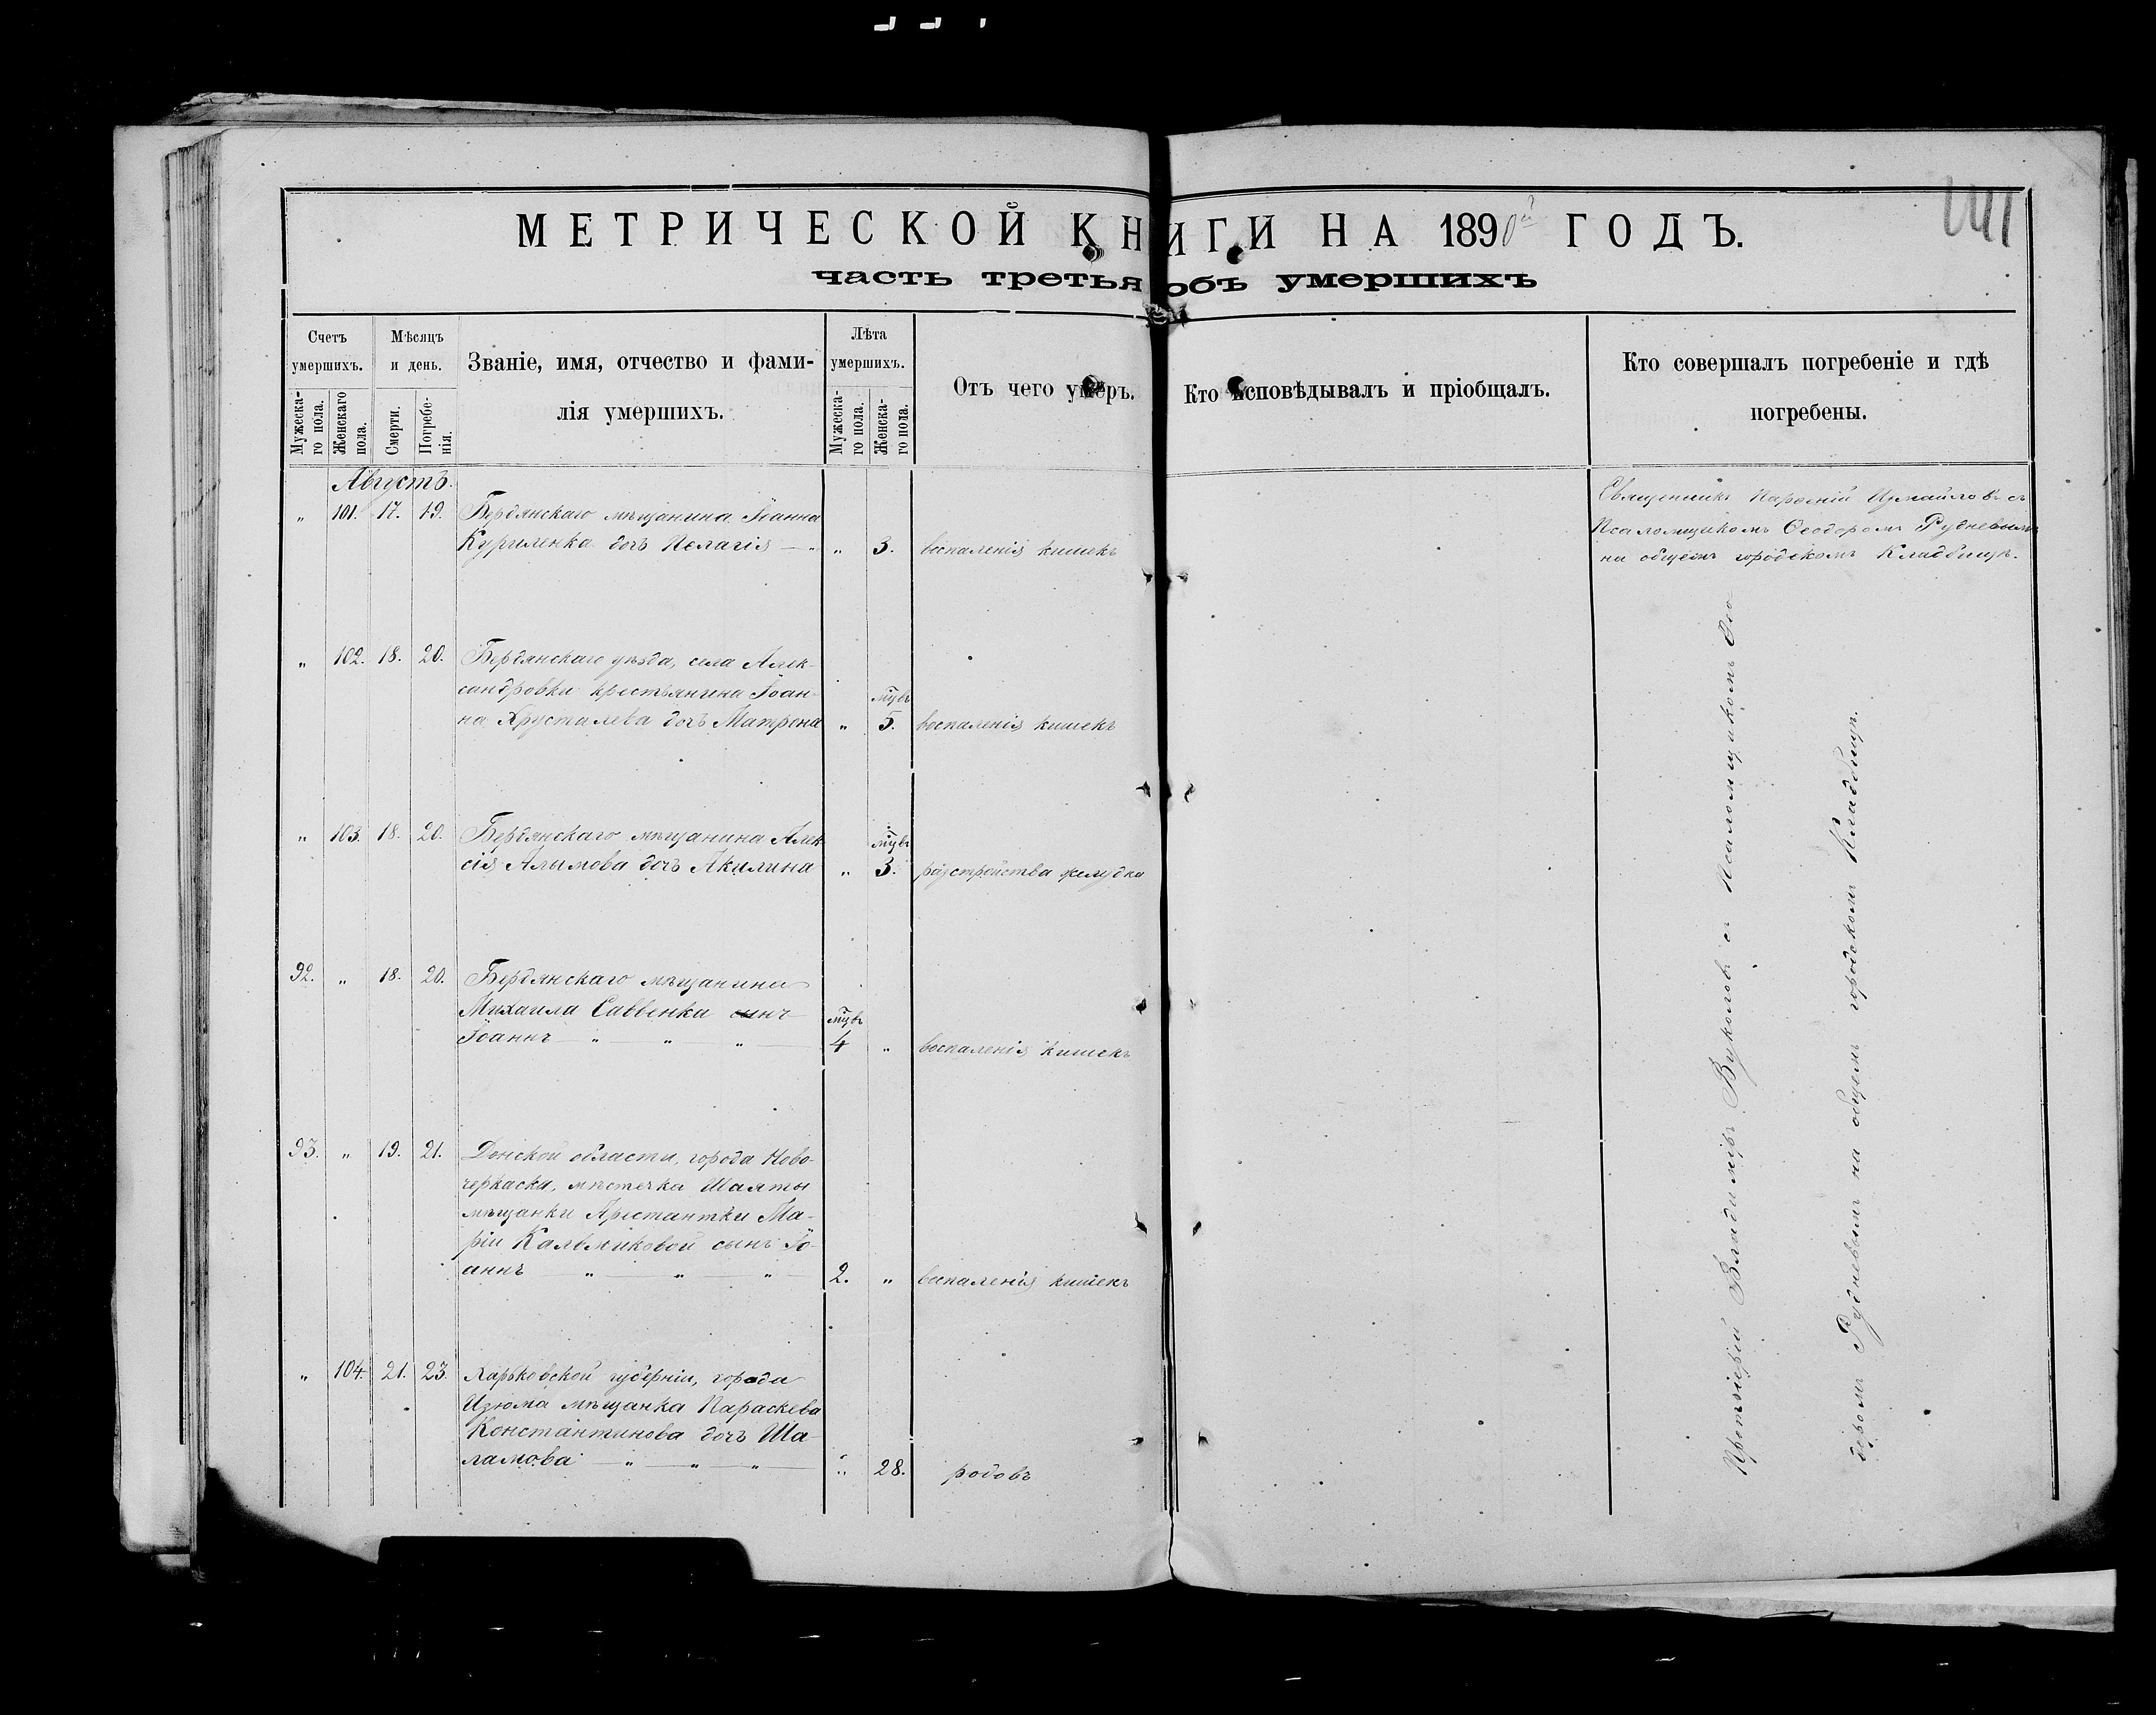 МЕТРИЧЕСКОЙ КНИГИ НА 1890й ГОДЪ.
часть третья объ умершихъ
Счетъ умершихъ.
Мужеска-
го пола.
Женскаго
пола.
Мѣсяцъ
и день.
Смерти.
Погребе-
нія.
Званіе, имя, отчество и фами-
лія умершихъ.
Лѣта
умершихъ.
Мужеска-
го пола.
Женска-
го пола.
Отъ чего умеръ.
Кто исповѣдывалъ и пріобщалъ.
Кто совершалъ погребеніе и гдѣ
погребены.
Августъ.
„ 101. 17. 19. Бердянскаго мѣщанина Іоанна
Куриленка дочь Пелагія „ „ 3. воспаленія кишекъ
Священникъ Парѳеній Измайловъ съ
Псаломщикомъ Ѳеодоромъ Рудневымъ
на общемъ городскомъ кладбищѣ.
„ 102. 18. 20. Бердянскаго уѣзда, села Алек-
сандровки крестьянина Іоан-
на Хрусталева дочь Матрона „ мцвъ 5. воспаленія кишекъ
„ 103. 18. 20. Бердянскаго мѣщанина Алек
сія Алымова дочь Акилина „ мцвъ 3. разстройства желудка
92. „ 18. 20. Бердянскаго мѣщанина
Михаила Саввенка сынъ
Іоаннъ „ „ „ мцвъ 4 „ воспаленія кишекъ
93. „ 19. 21. Донской области, города Ново-
черкаска, мѣстечка Шахты
мѣщанки Арестантки Ма-
ріи Калмыковой сынъ Іо-
аннъ „ „ „ 2. „ воспаленія кишекъ
„ 104. 21. 23. Харьковской губерніи, города
Изюма мѣщанка Параскева
Константинова дочь Ша-
ламова „ „ „ „ 28. родовъ
Протоіерей Владиміръ Вуколовъ съ Псаломщикомъ Ѳео-
доромъ Рудневымъ на общемъ городскомъ Кладбищѣ.